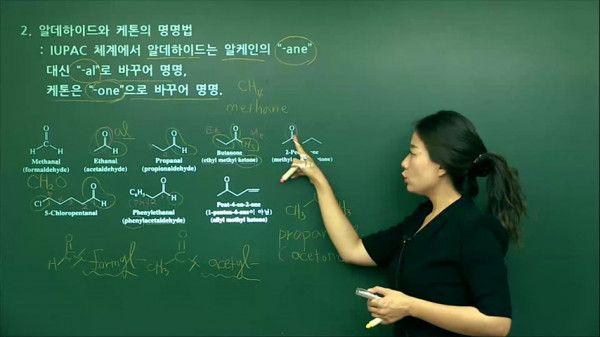 2. 알데하이드와 케톤의 명명법
: IUPAC 체계에서 알데하이드는 알케인의 "-ane"
대신 "-al"로 바꾸어 명명,
케톤은 "-one"으로 바꾸어 명명.
CH4
methane
al
Et
Me
Methanal
(formaldehyde)
Ethanal
(acetaldehyde)
Propanal
(propionaldehyde)
Butanone
(ethyl methyl ketone)
CH2O
5-Chloropentanal
C6H5
Phenylethanal
(phenylacetaldehyde)
Pent-4-en-2-one
(1-penten-4-one이 아님)
(allyl methyl ketone)
CH3
H
formyl-
CH3
acetyl-